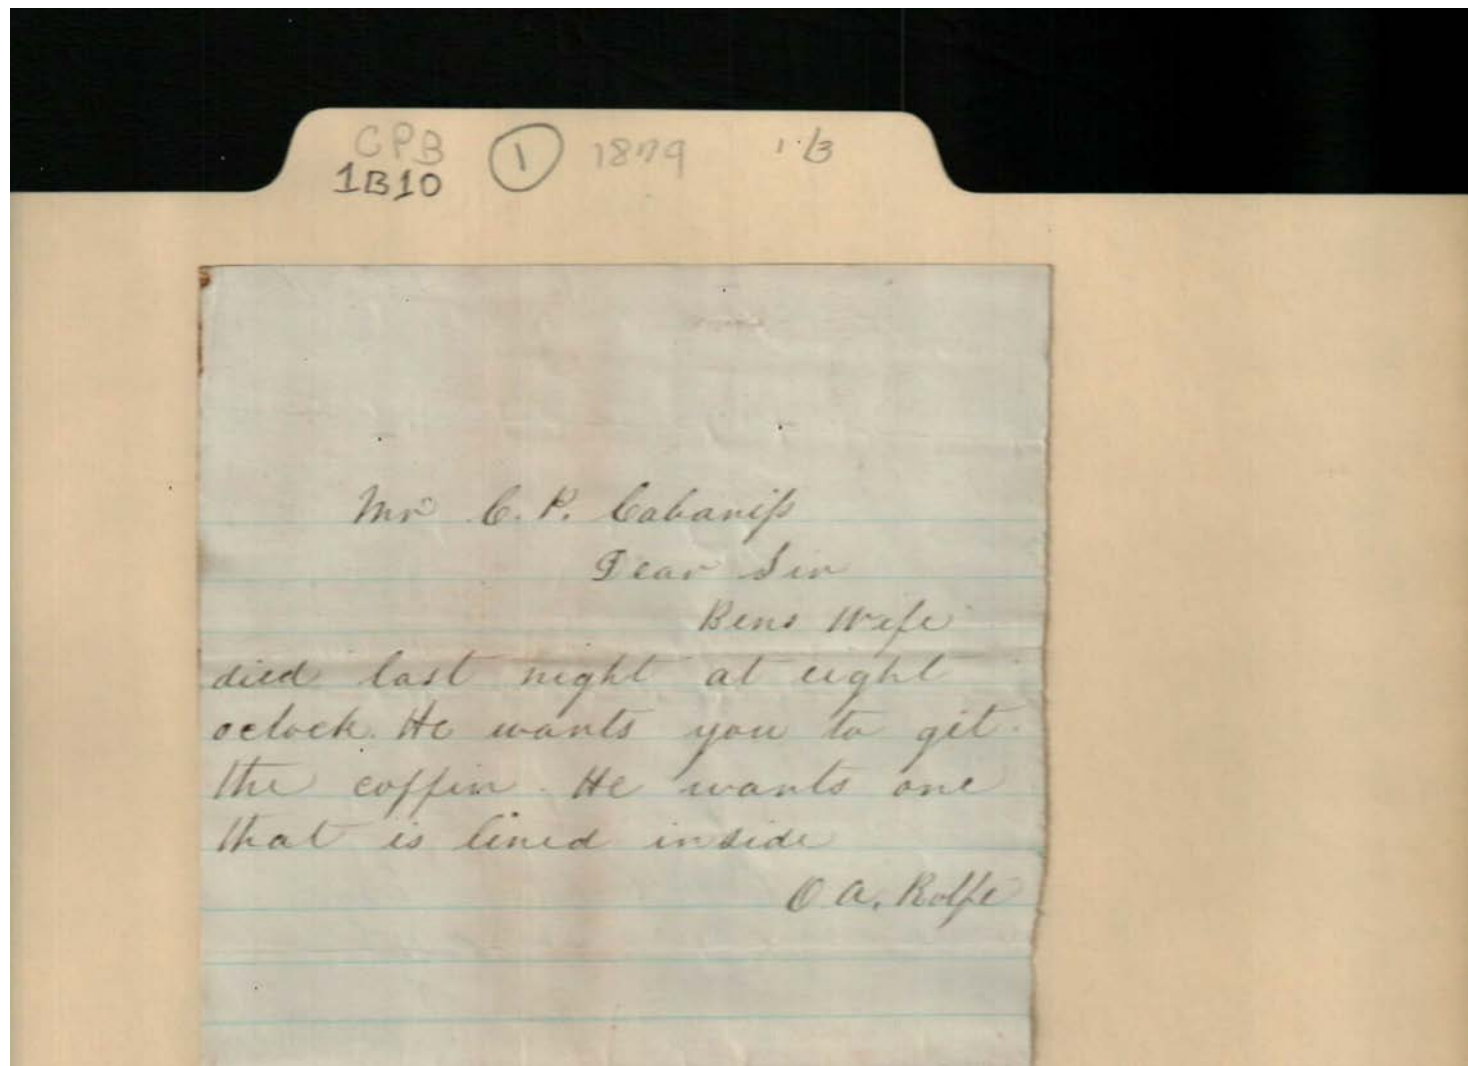 CPB 1 1879 1·/3
1B10
Mr C. P. Cabaniſs
Dear Sir
Bens Wife
died last night at eight
oclock. He wants you to git
the coffin. He wants one
that is lined inside
O. A. Rolfe